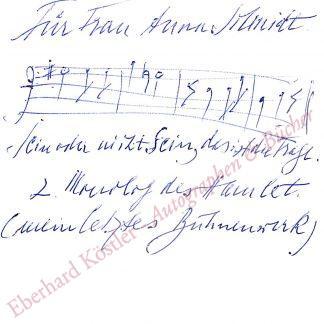 Für Frau Anna Schmidt.
Sein oder nicht Sein, das ist die Frage.
2. Monolog des Hamlet.
(mein letztes Bühnenwerk)
Eberhard Köstler - Autographen & Bücher